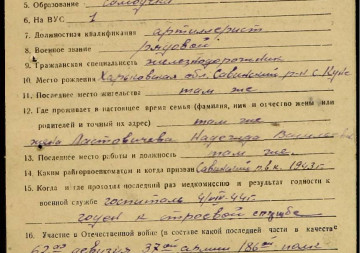 5. Образование самоучка
6. На ВУС 1
7. Должностная квалификация артиллерист
8. Военное звание рядовой
9. Гражданская специальность железнодорожник
10. Место рождения Харьковская обл. Савинский р-н с.
11. Последнее место жительства там же
12. Где проживает в настоящее время семья (фамилия, имя и отчество жены или
родителей и точный их адрес) там же
жена Надежда
13. Последнее место работы и должность там же
14. Каким райгорвоенкоматом и когда призван Савинским р.в.к. 1943 г.
15. Когда и где проходил последний раз медкомиссию и результат годности к
военной службе госпиталь 4/VIII-44 г.
годен к строевой службе
16. Участие в Отечественной войне (в составе какой последней части и в качестве
62ая дивизия 37ой армии 186ой полк